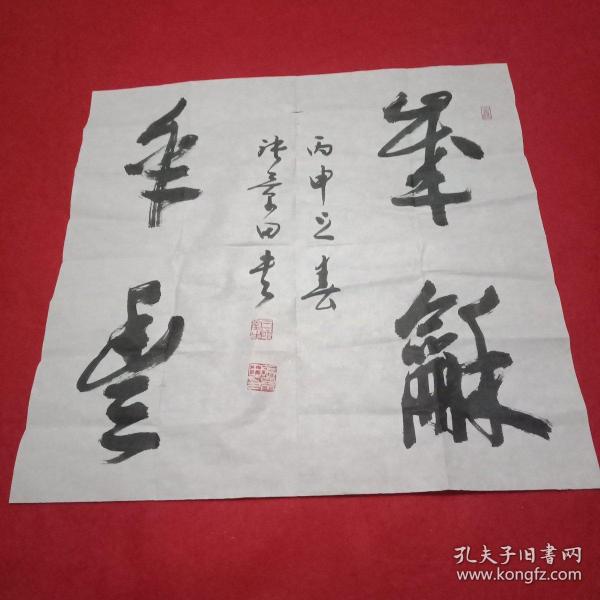 龢
丙申之春
張景田書
年豐
孔夫子旧书网
www.kongfz.com